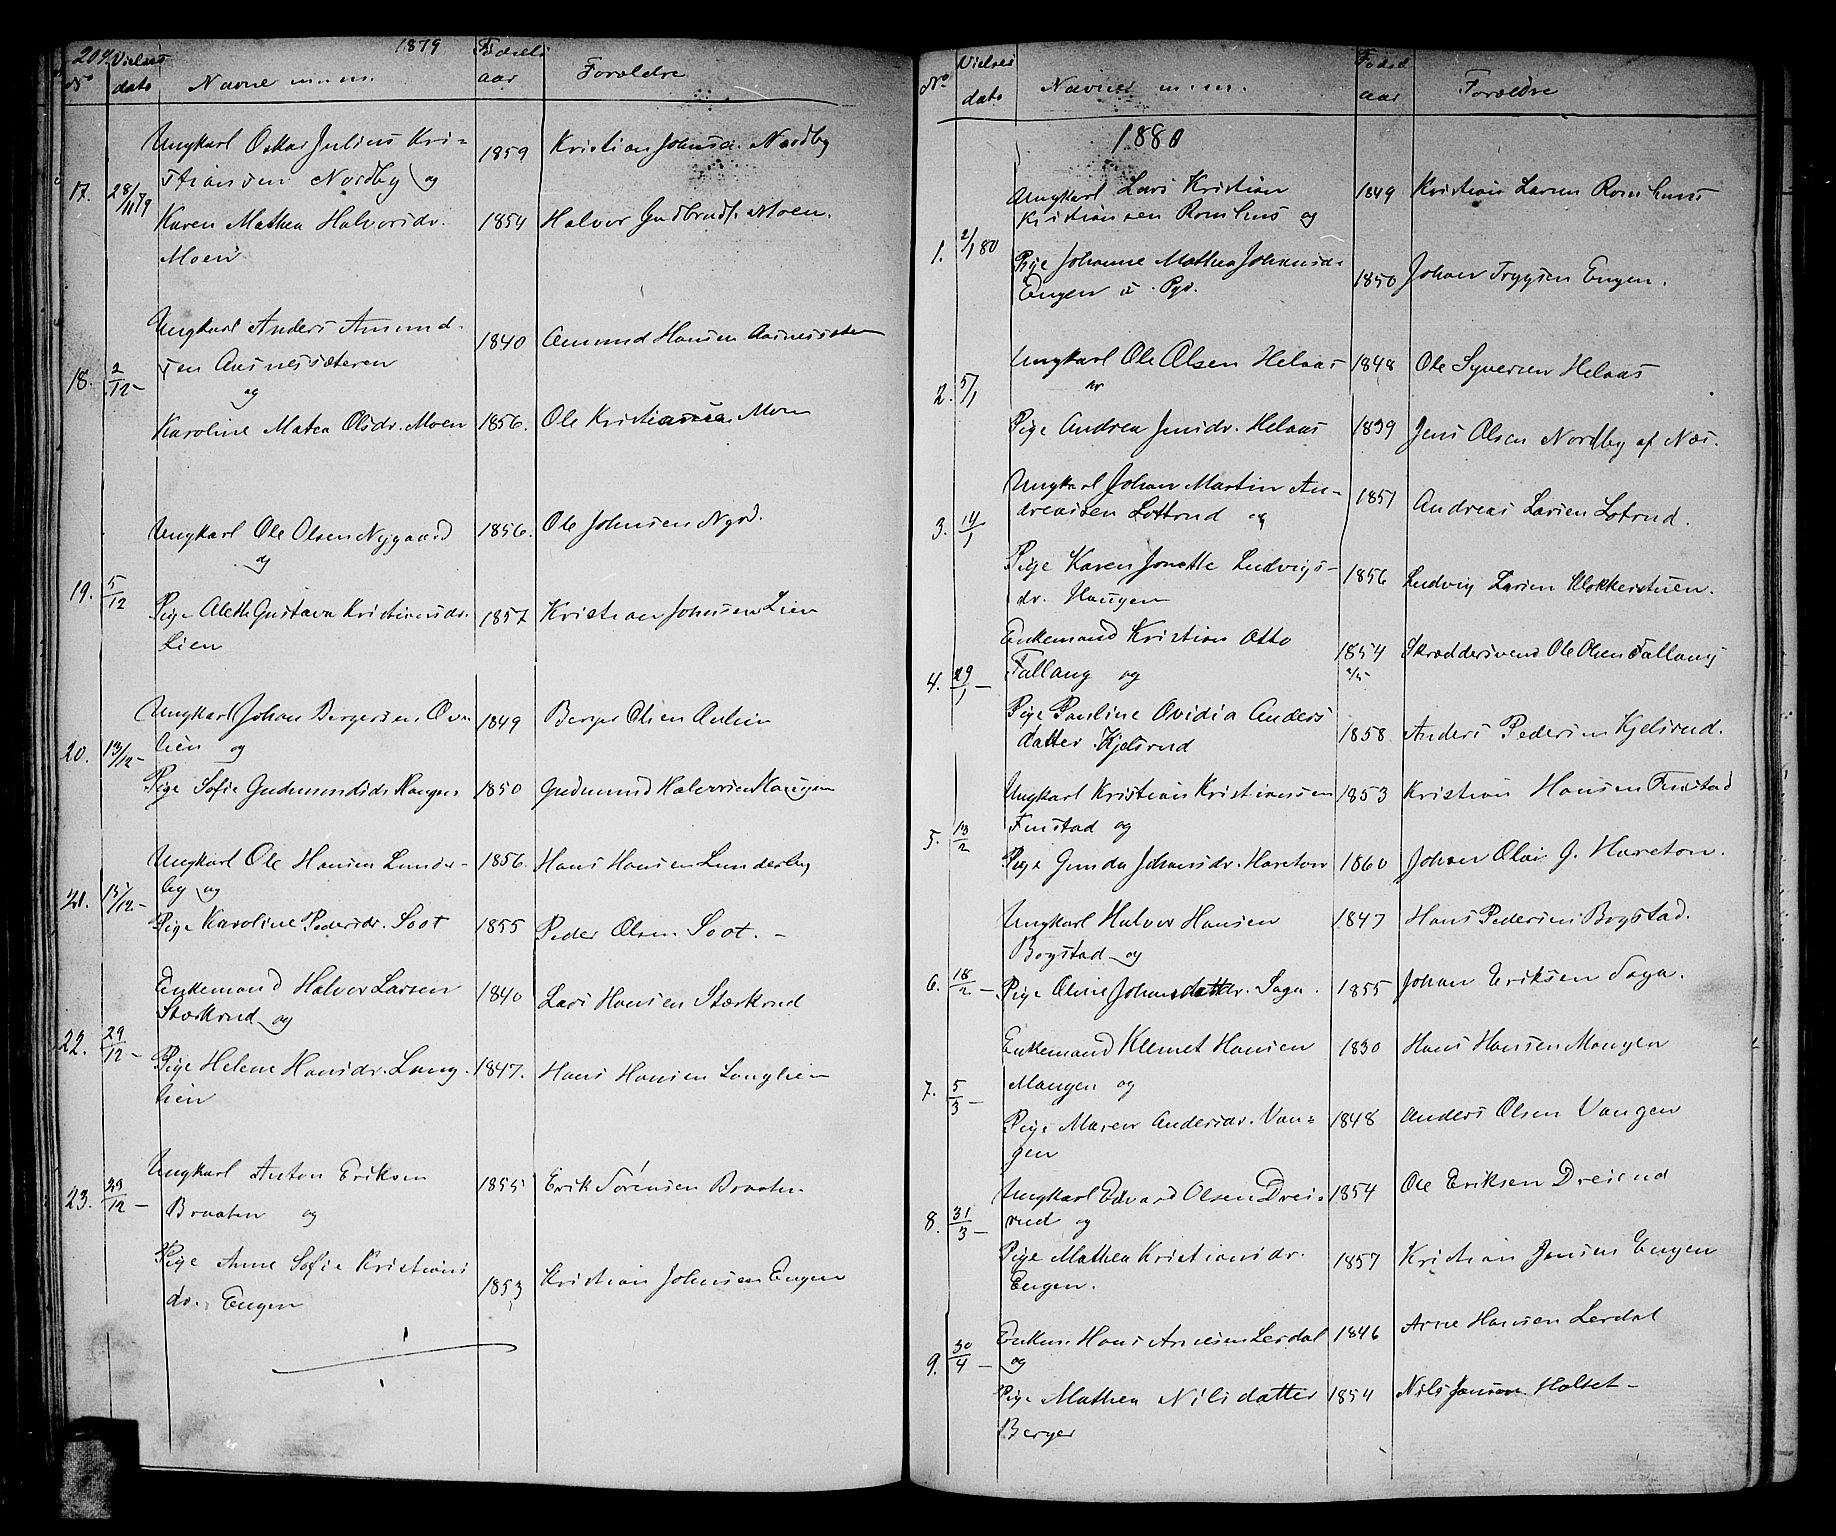 204.
1879
No
Vielses
dato
Navne m. m.
Fødsels
aar
Forældre
17.
28/11 79
Ungkarl Oskar Julius Kri-
stiansen Nordby og
1859
Kristian Johnsen Nordby
Karen Mathea Halvorsdr.
Moen
1854
Halvor Gudbrands. Moen.
18.
2/12 –
Ungkarl Anders Amund-
sen Aasnessæteren
og
1840
Amund Hansen Aasnessæter
Karoline Matea Olsdr. Moen
1856.
Ole Kristiansen Moen
19.
5/12
Ungkarl Ole Olsen Nygaard
og
1856.
Ole Johnsen Nygrd.
Pige Aleth Gustava Kristiansdr.
Lien
1857
Kristian Johnsen Lien
20.
13/12 –
Ungkarl Johan Bergersen
lien og
1849
Berger Olsen
Pige Sofie Gudmundsdr Haugen
1850
Gudmund Halvorsen Haugen
21.
15/12 –
Ungkarl Ole Hansen Lunder-
by og
1856.
Hans Hansen Lunderby
Pige Karoline Pedersdr. Soot
1855
Peder Olsen Soot. –
22.
29/12 –
Enkemand Halvor Larsen
Stærkrud og
1840
Lars Hansen Stærkrud
Pige Helene Hansdr. Lang-
lien
1847.
Hans Hansen Langlien
23.
29/12 –
Ungkarl Anton Eriksen
Braaten og
1855
Erik Sørensen Braaten
Pige Anne Sofie Kristians
dr. Engen
1853
Kristian Johnsen Engen
No
Vielses
dato
Navne m. m.
Føds
aar
Forældre
1880
1.
2/1 80
Ungkarl Lars Kristian
Kristiansen Romhus og
1849
Kristian Larsen Romhuus
Pige Johanne Mathea Johansdr
Engen
1850
Johan Trygsen Engen.
2.
5/1
Ungkarl Ole Olsen Helaas
og
1848
Ole Syversen Helaas
Pige Andrea Jensdr. Helaas
1839
Jens Olsen Nordby af Næs.
3.
14/1
Ungkarl Johan Martin An-
dreassen Lottrud og
1851
Andreas Larsen Lotrud.
Pige Karen Jonette Ludvigs-
dr. Haugen
1856
Ludvig Larsen Klokkerstuen.
4.
29/1 –
Enkemand Kristian Otto
Fallang og
1854
Skræddersvend Ole Olsen Fallang
Pige Pauline Ovidia Anders
datter Kjelsrud
1858
Anders Pedersen Kjelsrud.
5.
13/2
Ungkarl Kristian Kristianssen
Finstad og
1853
Kristian Hansen Finstad
Pige Gunda Johansdr. Hareton
1860
Johan Olai G. Hareton.
6.
18/2 –
Ungkarl Halvor Hansen
Bogstad og
1847
Hans Pedersen Bogstad.
Pige Oline Johansdatter. Saga.
1855
Johan Eriksen Saga.
7.
5/3 –
Enkemand Klemet Hansen
Mangen og
1830
Hans Hansen Mangen
Pige Maren Andersdr. Van-
gen
1848
Anders Olsen Vangen
8.
31/3 –
Ungkarl Edvard Olsen Drei-
rud og
1854
Ole Eriksen Dreirud
Pige Mathea Kristiansdr.
Engen.
1857
Kristian Jensen Engen
9.
30/4 –
Enkem. Hans Arnesen Lerdal
og
1846
Arne Hansen Lerdal
Pige Mathea Nilsdatter
Berger
1854
Nils Jansen Holset –